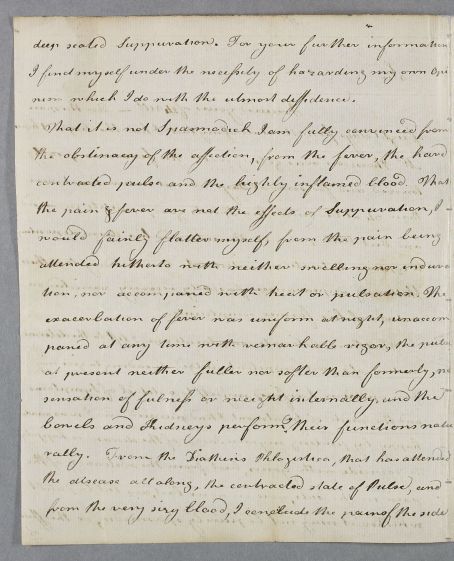 deep seated Suppuration. For your further information
I find myself under the necessity of hazarding my own Opi
nion which I do with the utmost diffidence.
That it is not Spasmodick I am fully convinced from
the obstinacy of the affection, from the fever, the hard
contracted pulse and the highly inflamed blood. That
the pain & fever are not the effects of Suppuration, I
would fainly flatter myself from the pain being
attended hitherto with neither swelling nor indura
tion, nor accompanied with heat or pulsation. The
exacerbation of fever was uniform at night, unaccom
panied at any time with remarkable rigor, the pulse
at present neither fuller nor softer than formerly, no
sensation of fulness or weight internally, and the
bowels and Kidneys perform'g their functions natu
rally. From the Diathesis Phlogistica, that has attended
the disease all along, the contracted state of Pulse, and
from the very sizy blood, I conclude the pain of the side